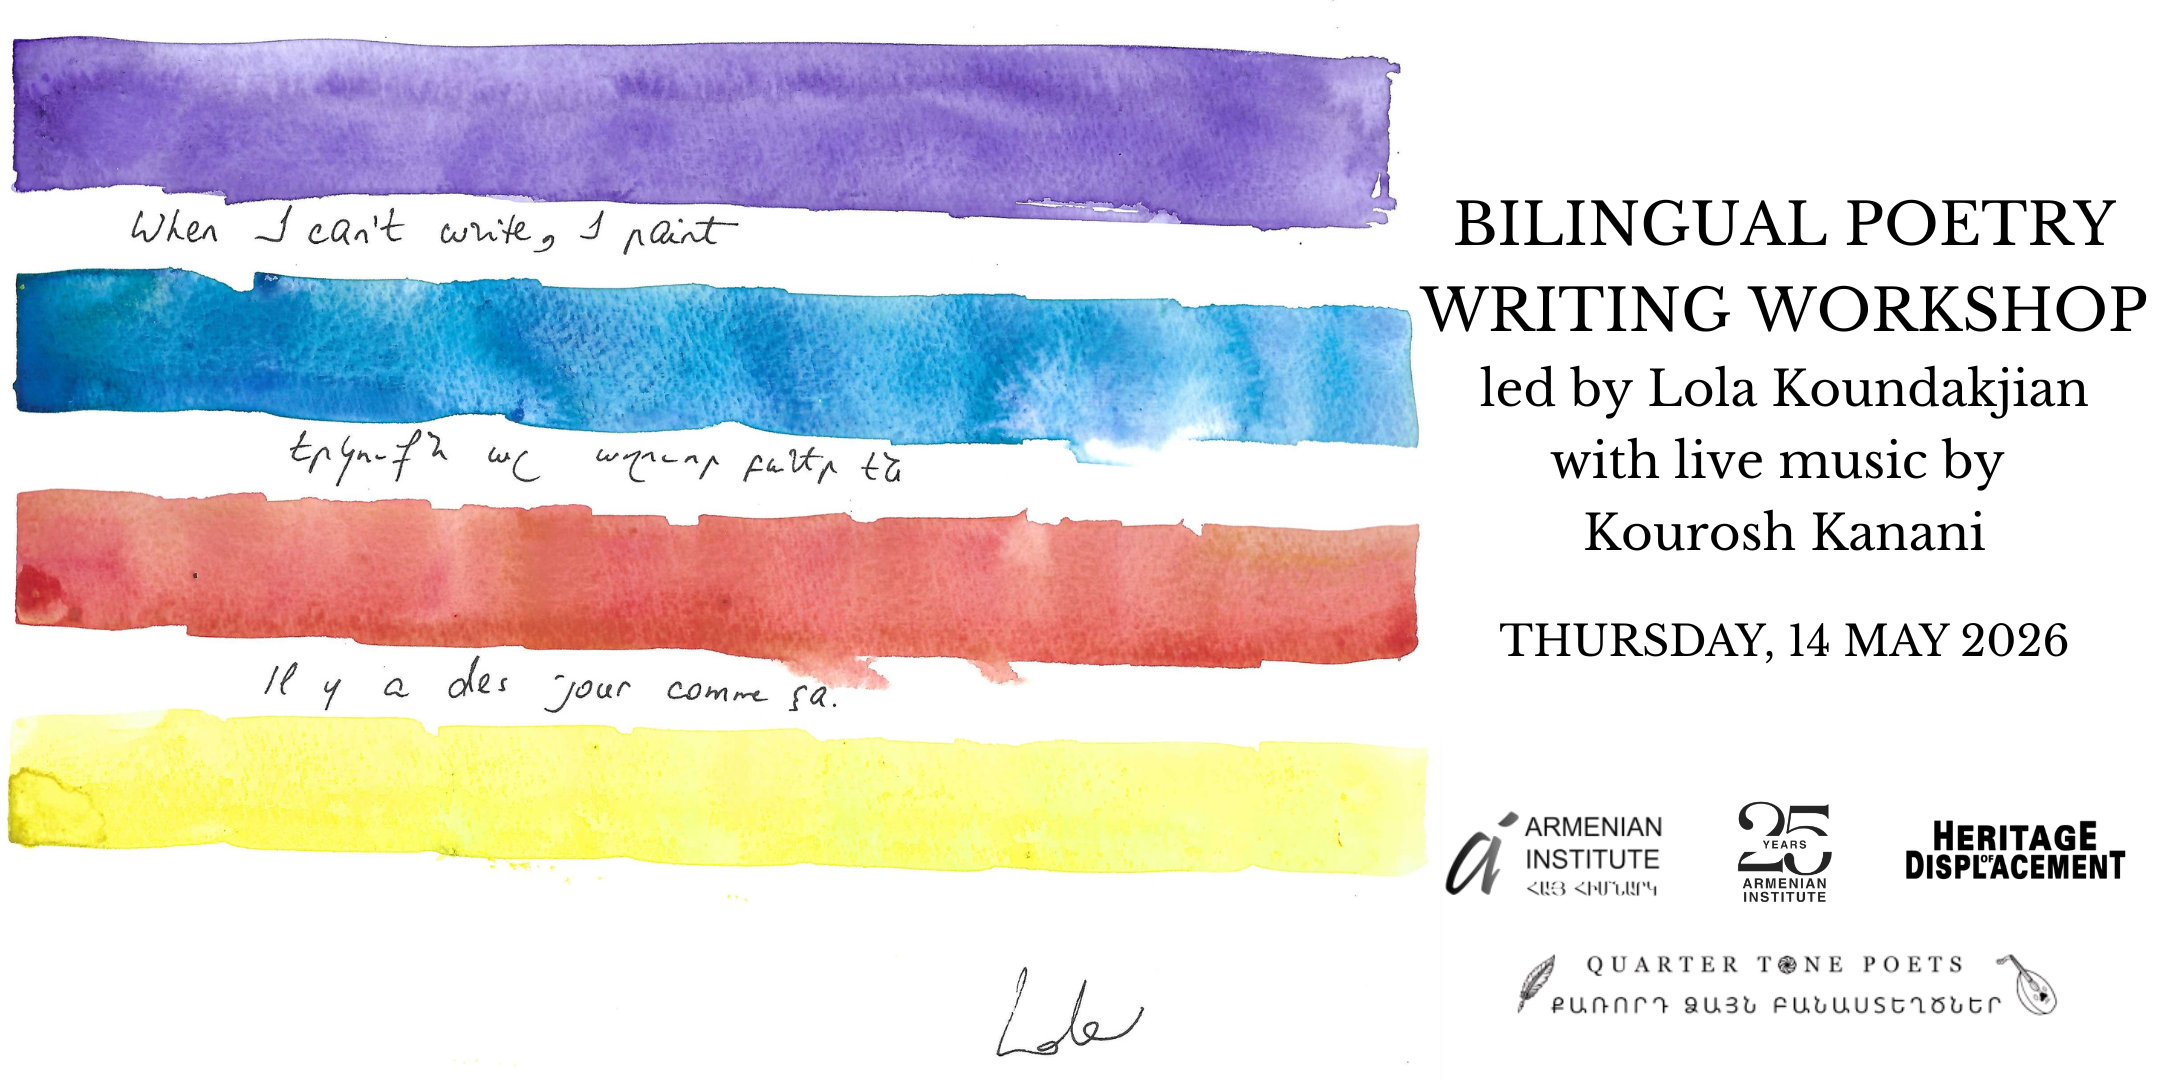 When I can't write, I paint
երկուքն ալ աղուոր բաներ են
Il y a des jour comme ça.
Lola
BILINGUAL POETRY
WRITING WORKSHOP
led by Lola Koundakjian
with live music by
Kourosh Kanani
THURSDAY, 14 MAY 2026
ARMENIAN
INSTITUTE
ՀԱՅ ՀԻՄՆԱՐԿ
25
YEARS
ARMENIAN
INSTITUTE
HERITAGE
OF
DISPLACEMENT
QUARTER TONE POETS
ՔԱՌՈՐԴ ՁԱՅՆ ԲԱՆԱՍՏԵՂԾՆԵՐ